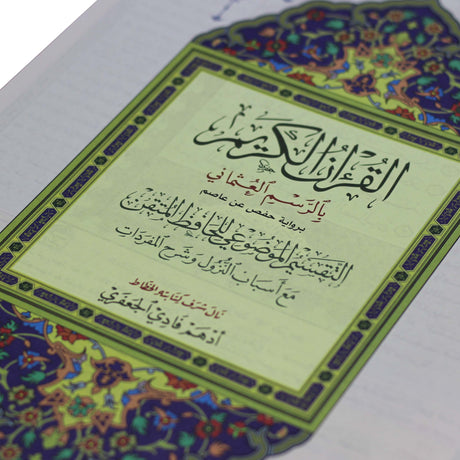 القرءان الكريم
بالرسم العثماني
برواية حفص عن عاصم
التقسيم الموضوعي للحافظ المتقن
مع أسباب النزول وشرح المفردات
نال شرف كتابته الخطاط
أدهم فادي الجعفري